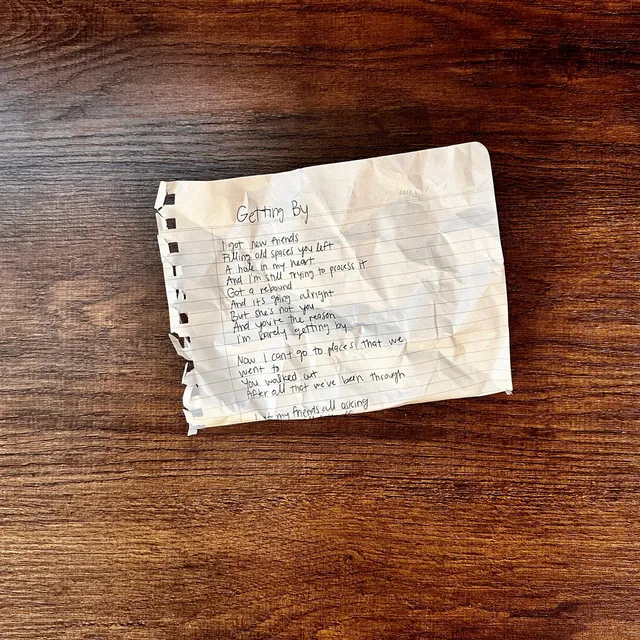 Getting By
I got new friends
Filling old spaces you left
A hole in my heart
And I'm still trying to process it
Got a rebound
And it's going alright
But she's not you
And you're the reason
I'm barely getting by
Now I can't go to places that we
went to
You walked out
After all that we've been through
my friends all asking